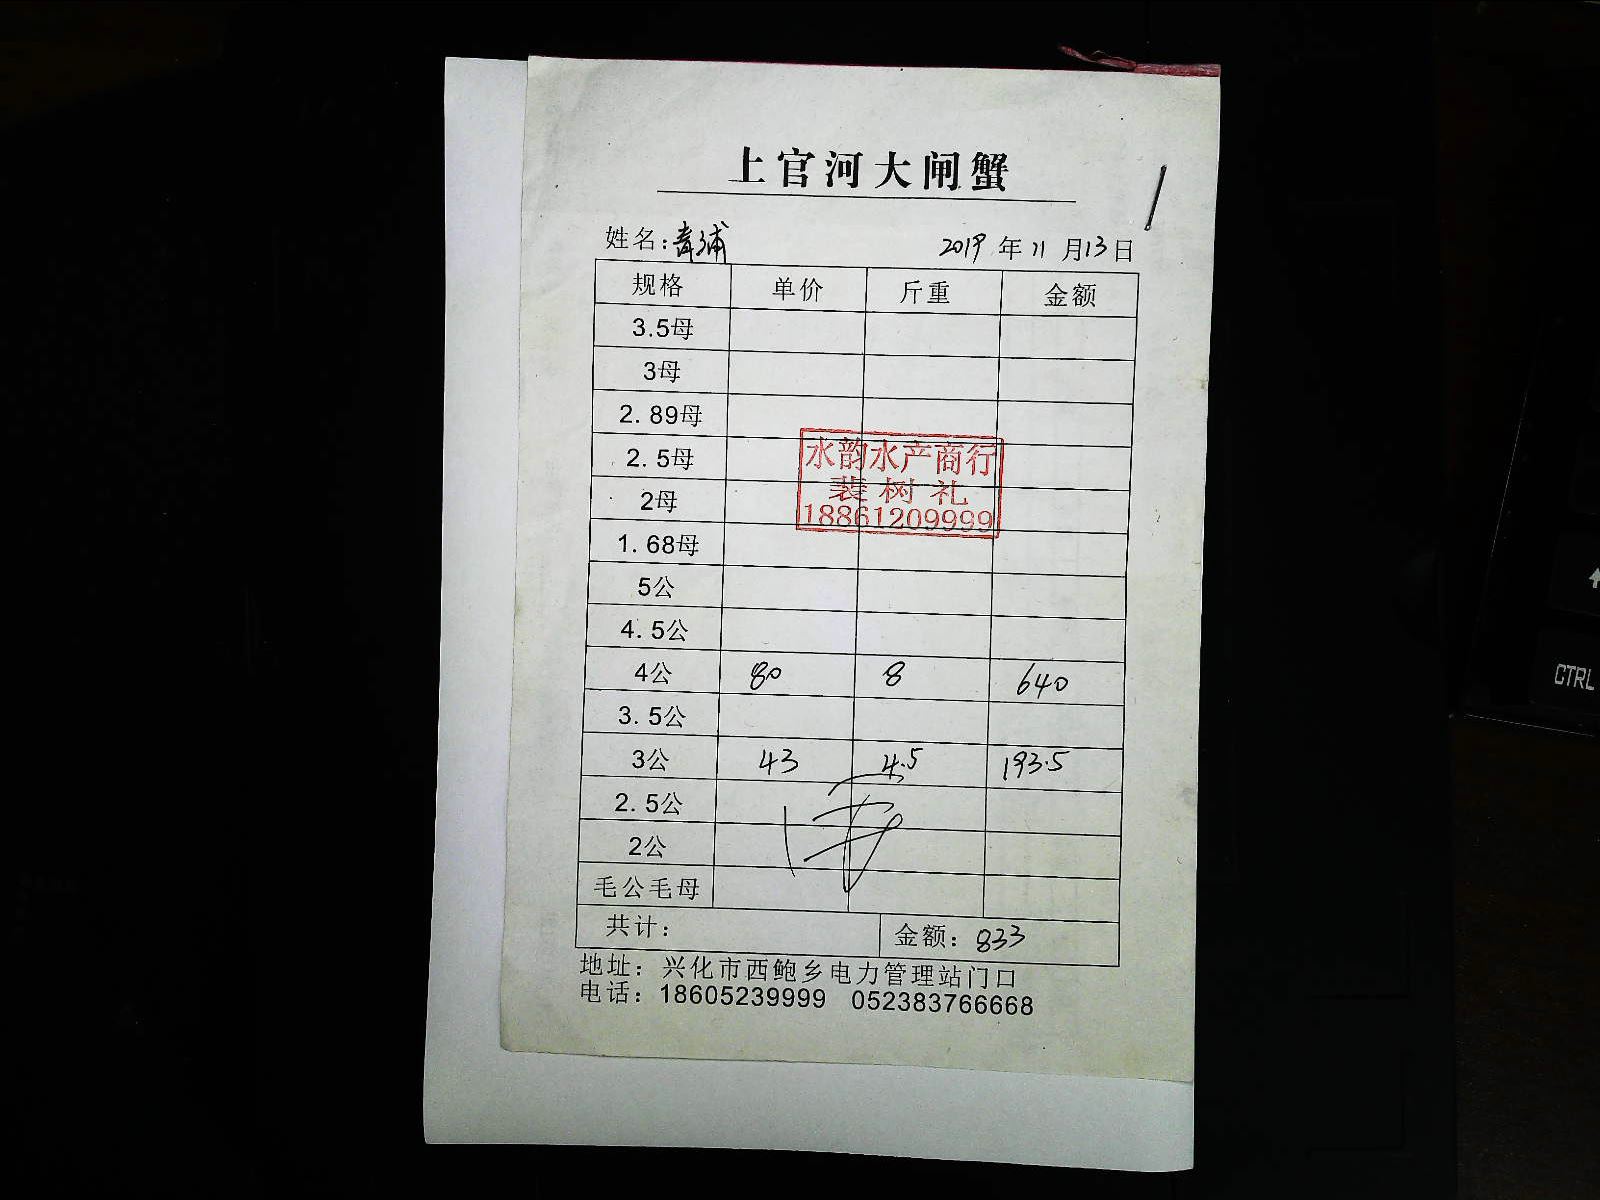 上官河大闸蟹
姓名：青浦 2019年11月13日
规格 单价 斤重 金额
3.5母
3母
2.89母
2.5母
2母
1.68母
水韵水产商行
裴树礼
18861209999
5公
4.5公
4公 80 8 640
3.5公
3公 43 4.5 193.5
2.5公
2公
毛公毛母
共计： 金额：833
地址：兴化市西鲍乡电力管理站门口
电话：18605239999 052383766668
CTRL